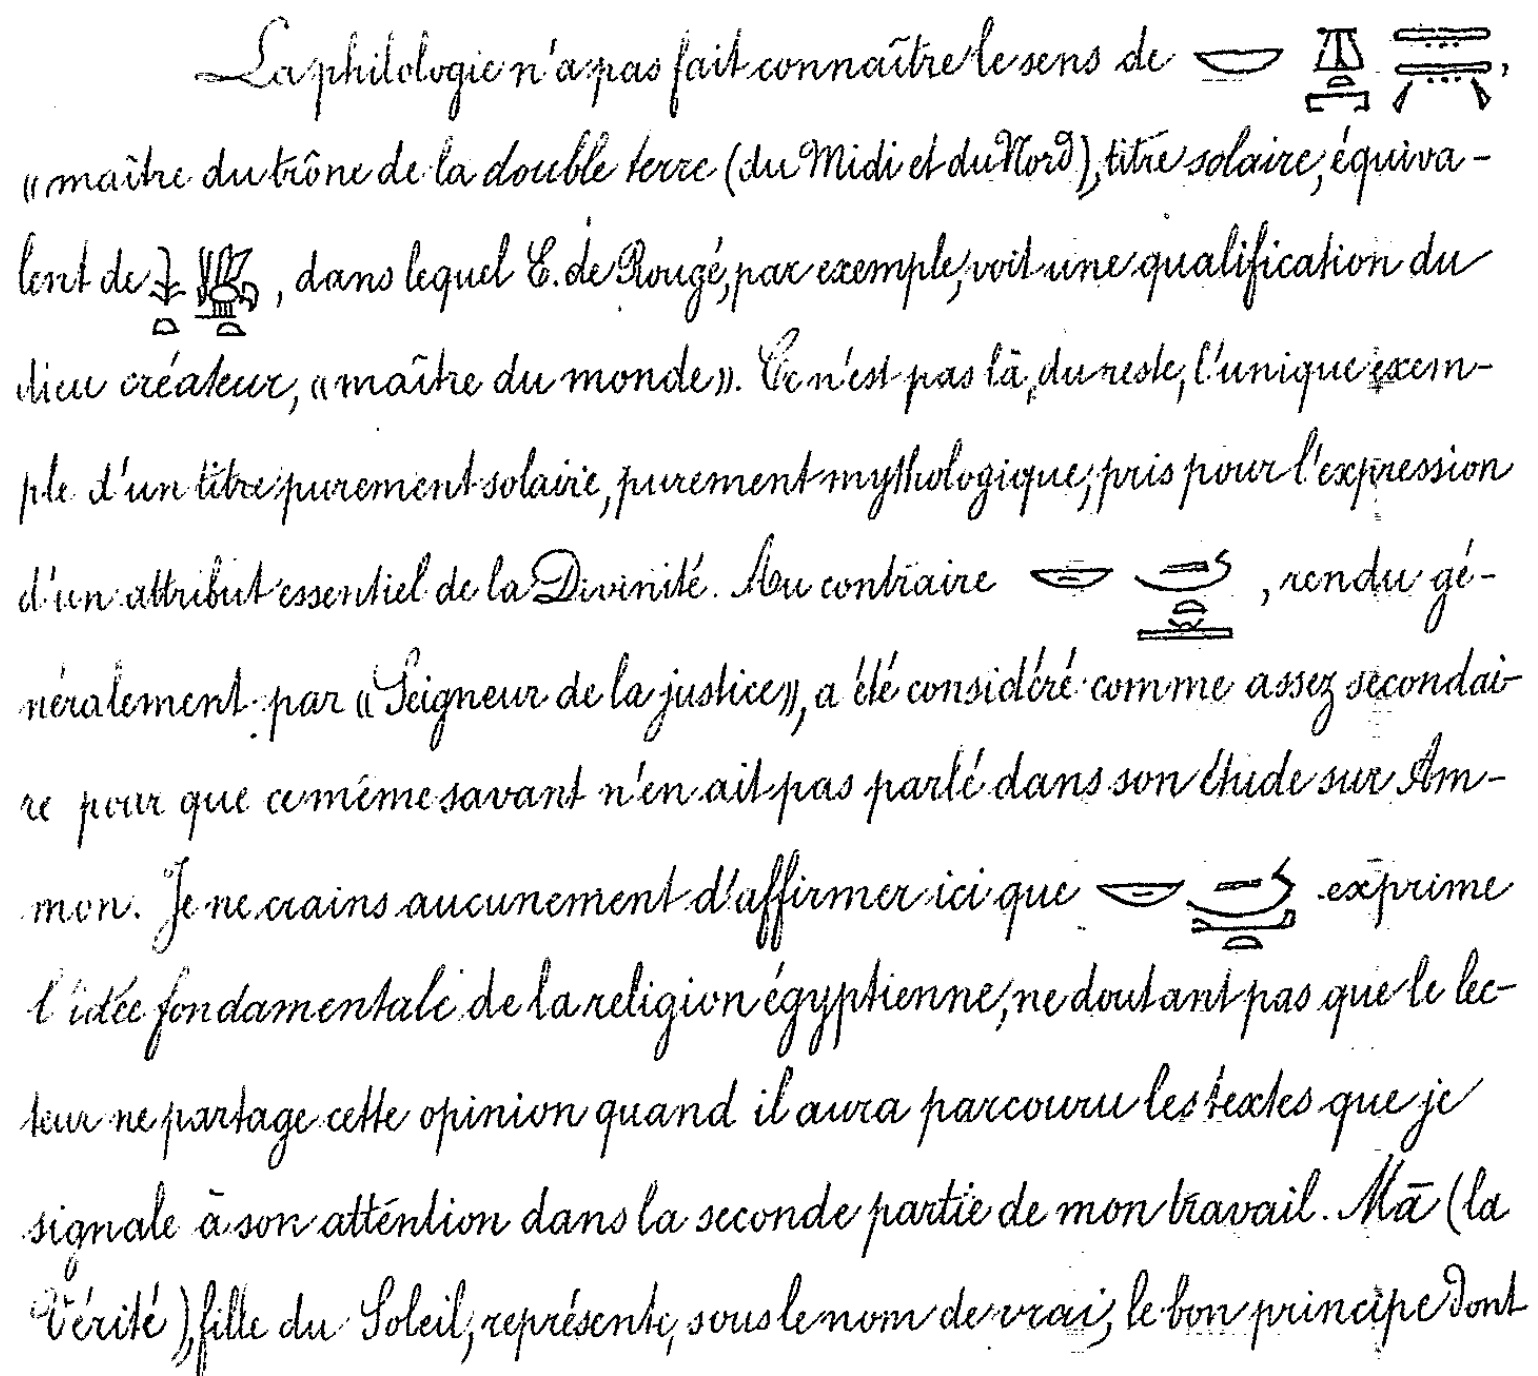 La philologie n'a pas fait connaître le sens de 𓎟 𓇿𓇿,
«maître du trône de la double terre (du Midi et du Nord), titre solaire, équiva-
lent de , dans lequel E. de Rougé, par exemple, voit une qualification du
dieu créateur, «maître du monde». Ce n'est pas là, du reste, l'unique exem-
ple d'un titre purement solaire, purement mythologique, pris pour l'expression
d'un attribut essentiel de la Divinité. Au contraire 𓎟 , rendu gé-
néralement par «Seigneur de la justice», a été considéré comme assez secondai-
re pour que ce même savant n'en ait pas parlé dans son étude sur Am-
mon. Je ne crains aucunement d'affirmer ici que 𓎟 exprime
l'idée fondamentale de la religion égyptienne, ne doutant pas que le lec-
teur ne partage cette opinion quand il aura parcouru les textes que je
signale à son attention dans la seconde partie de mon travail. Mā (la
Vérité), fille du Soleil, représente, sous le nom de vrai, le bon principe dont